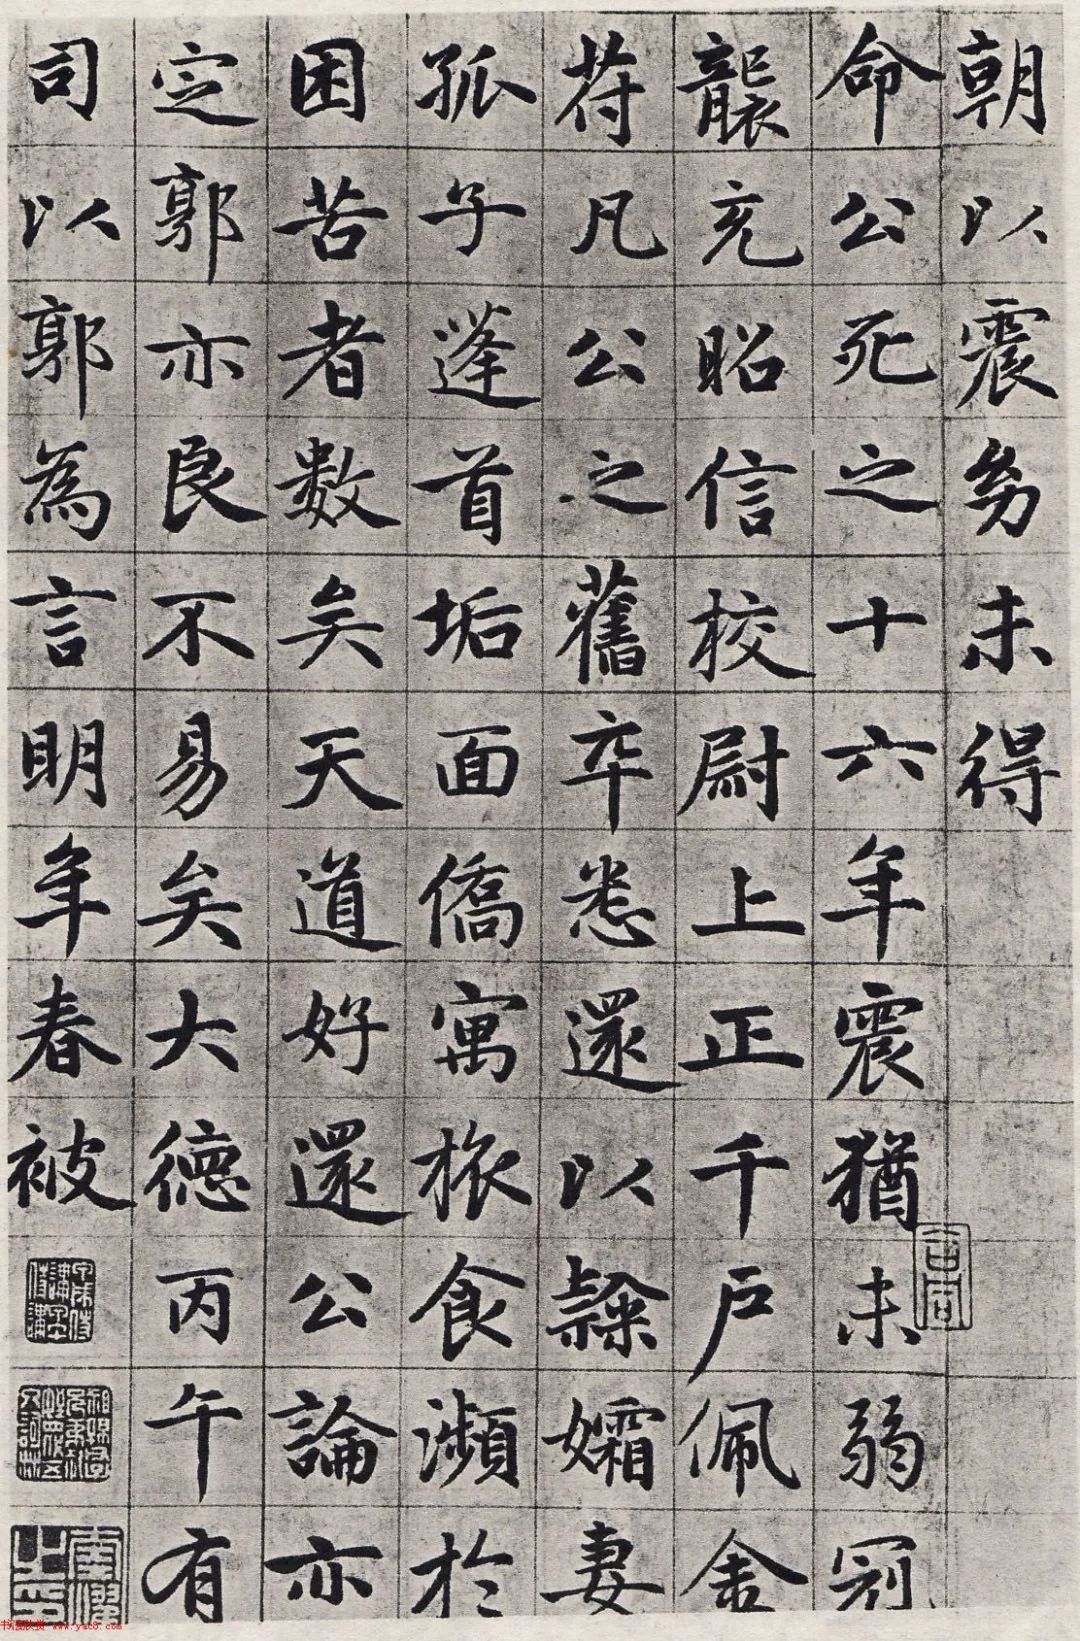 朝以震㓜未得
命公死之十六年震猶未弱冠
襲充昭信校尉上正千戶佩金
符凡公之舊卒悉還以隸孀妻
孤子蓬首垢面僑寓旅食瀕於
困苦者數矣天道好還公論亦
定郭亦良不易矣大德丙午有
司以郭為言明年春被
书法欣赏 www.yac8.com